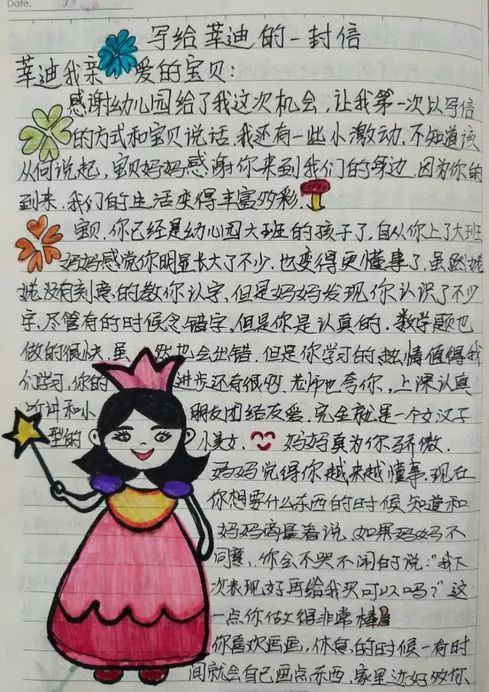 Date.
写给莘迪的一封信
莘迪我亲爱的宝贝：
感谢幼儿园给了我这次机会，让我第一次以写信
的方式和宝贝说话，我还有一些小激动，不知道该
从何说起，宝贝妈妈感谢你来到我们的身边，因为你的
到来，我们的生活变得丰富多彩。
宝贝，你已经是幼儿园大班的孩子了，自从你上了大班
妈妈感觉你明显长大了不少，也变得更懂事了，虽然姥
姥没有刻意的教你认字，但是妈妈发现你认识了不少
字，尽管有的时候念错字，但是你是认真的，数学题也
做的很快，虽然也会出错，但是你学习的热情值得我
们学习，你的进步还有很多，老师也夸你，上课认真
听讲和小朋友团结友爱，完全就是一个女汉子
型的小美女。妈妈真为你骄傲。
妈妈觉得你越来越懂事，现在
你想要什么东西的时候知道和
妈妈商量着说，如果妈妈不
同意，你会不哭不闹的说："我下
次表现好再给我买可以吗？"这
一点你做得非常棒
你喜欢画画，休息的时候一有时
间就会自己画点东西，家里边好多你